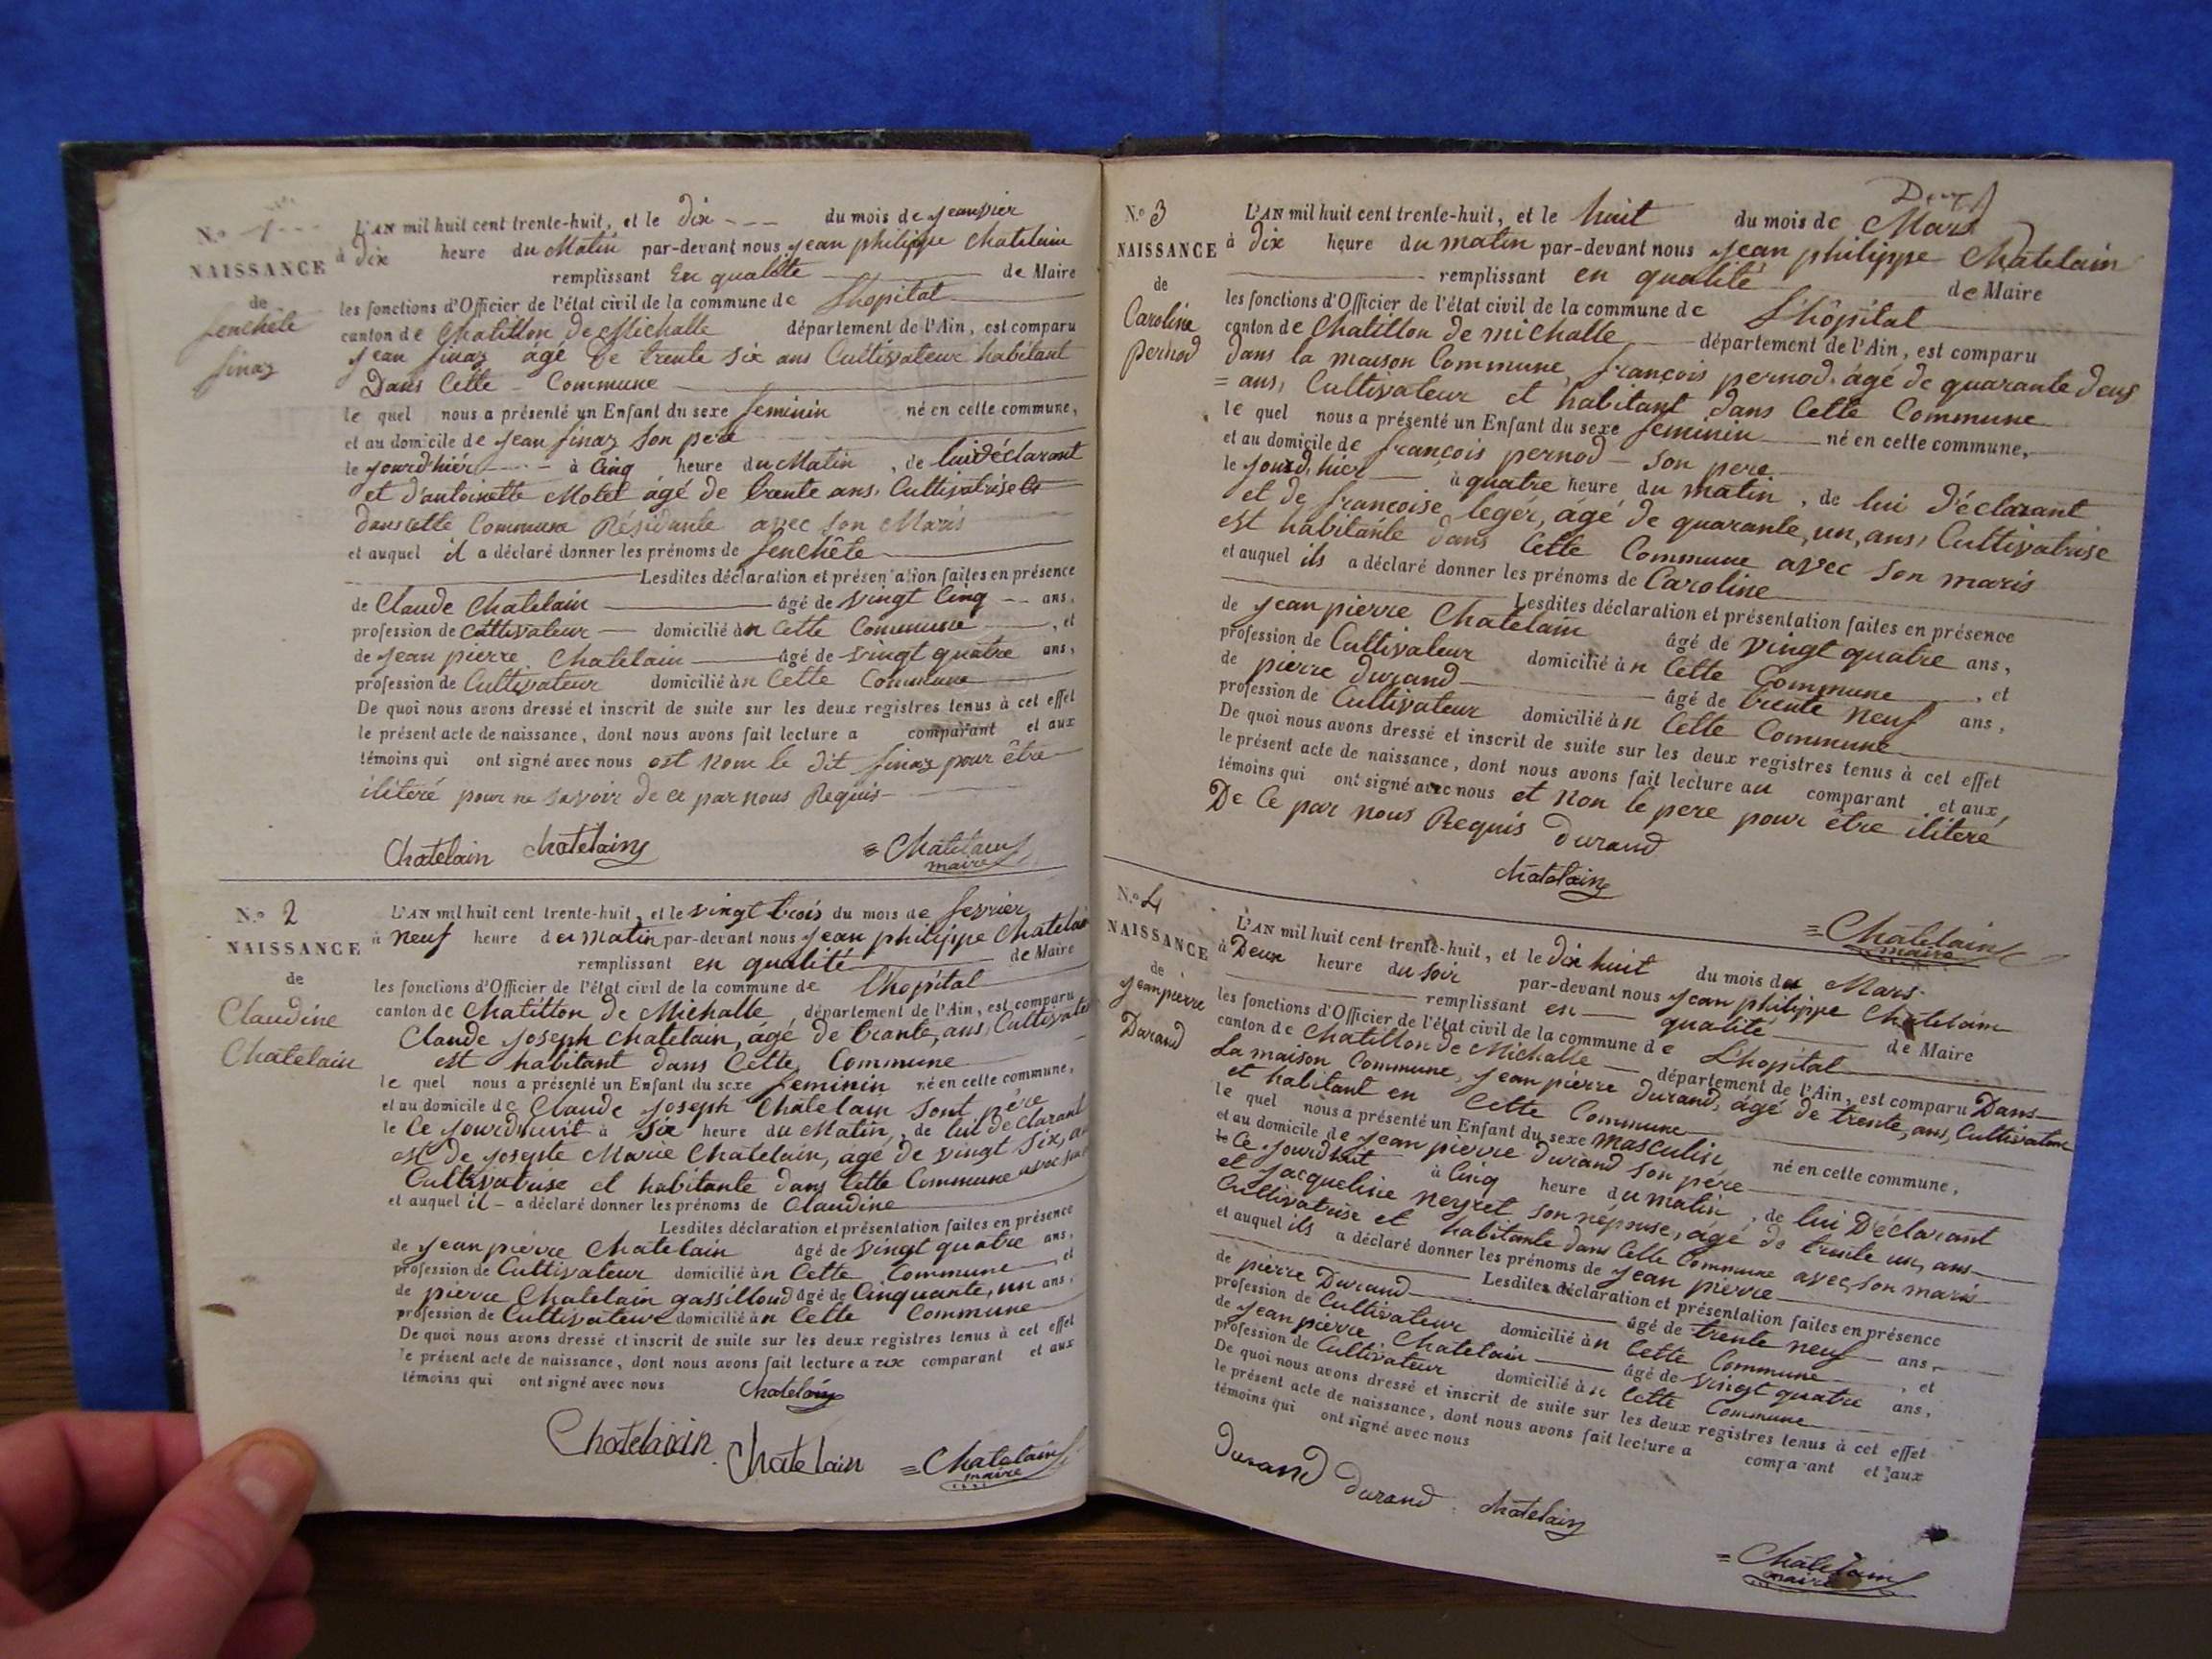 N.o 1
NAISSANCE
de
fenchête
finaz
L'AN mil huit cent trente-huit, et le dix du mois de jeanvier
à dix heure du Matin par-devant nous jean philippe Chatelain
remplissant En qualite de Maire
les fonctions d'Officier de l'état civil de la commune de L'hopital
canton de Chatillon de Michalle département de l'Ain, est comparu
jean finaz agé de trente six ans Cultivateur habitant
Dans Cette Commune
le quel nous a présenté un Enfant du sexe feminin né en cette commune,
et au domicile de jean finaz son pere
le jourd'hiér à Cinq heure du Matin, de lui déclarant
et d'antoinette Motet âgé de trente ans, Cultivatrise Et
dans cette Commune Résidante avec son Maris
et auquel il a déclaré donner les prénoms de fenchête
Lesdites déclaration et présentation faites en présence
de Claude Chatelain âgé de vingt Cinq ans,
profession de Cultivateur domicilié àn Cette Commune, et
de jean pierre Chatelain âgé de vingt quatre ans,
profession de Cultivateur domicilié àn Cette Commune
De quoi nous avons dressé et inscrit de suite sur les deux registres tenus à cet effet
le présent acte de naissance, dont nous avons fait lecture a comparant et aux
témoins qui ont signé avec nous est Non le dit finaz pour être
iliteré pour ne savoir de ce par nous Requis
Chatelain Chatelain = Chatelain
maire
N.o 2
NAISSANCE
de
Claudine
Chatelain
L'AN mil huit cent trente-huit, et le vingt trois du mois de fevrier
à neuf heure du matin par-devant nous jean philippe Chatelain
remplissant en qualité de Maire
les fonctions d'Officier de l'état civil de la commune de l'hopital
canton de Chatillon de Michalle, département de l'Ain, est comparu
Claude joseph Chatelain, âgé de trante, ans, Cultivate
est habitant dans Cette, Commune
le quel nous a présenté un Enfant du sexe feminin né en cette commune,
et au domicile de Claude joseph Chatelain sont père
le Ce jourdhuit à six heure du Matin, de lui déclarant
est de josephte Marie Chatelain, agé de vingt six, an
Cultivatrise et habitante dans Cette Commune avec son
et auquel il a déclaré donner les prénoms de Claudine
Lesdites déclaration et présentation faites en présence
de jean pierre Chatelain âgé de vingt quatre ans,
profession de Cultivateur domicilié àn Cette Commune, et
de pierre Chatelain gassilloud âgé de Cinquante, un ans,
profession de Cultivateur domicilié àn Cette Commune
De quoi nous avons dressé et inscrit de suite sur les deux registres tenus à cet effet
le présent acte de naissance, dont nous avons fait lecture a comparant et aux
témoins qui ont signé avec nous Chatelain
Chatelain Chatelain = Chatelain
maire
N.o 3
NAISSANCE
de
Caroline
pernod
L'AN mil huit cent trente-huit, et le huit du mois de Mars
à dix heure du matin par-devant nous jean philippe Chatelain
remplissant en qualité de Maire
les fonctions d'Officier de l'état civil de la commune de L'hôpital
canton de Chatillon de michalle département de l'Ain, est comparu
dans la maison Commune, françois pernod, âgé de quarante deus
= ans, Cultivateur et habitant dans Cette Commune
le quel nous a présenté un Enfant du sexe feminin né en cette commune,
et au domicile de françois pernod son pere
le jourd'hier à quatre heure du matin, de lui Déclarant
et de françoise legér, agé de quarante, un, ans, Cultivatrise
est habitante dans Cette Commune avec son maris
et auquel ils a déclaré donner les prénoms de Caroline
Lesdites déclaration et présentation faites en présence
de jean pierre Chatelain âgé de vingt quatre ans,
profession de Cultivateur domicilié àn Cette Commune, et
de pierre durand âgé de trente neuf ans,
profession de Cultivateur domicilié àn Cette Commune
De quoi nous avons dressé et inscrit de suite sur les deux registres tenus à cet effet
le présent acte de naissance, dont nous avons fait lecture au comparant et aux,
témoins qui ont signé avec nous et Non le pere pour être iliteré
De Ce par nous Requis durand
Chatelain
= Chatelain
maire
N.o 4
NAISSANCE
de
jean pierre
Durand
L'AN mil huit cent trente-huit, et le dix huit du mois de Mars
à Deux heure du soir par-devant nous jean philippe Chatelain
remplissant en qualité de Maire
les fonctions d'Officier de l'état civil de la commune de L'hopital
canton de Chatillon de Michalle département de l'Ain, est comparu Dans
La maison Commune, jean pierre durand, âgé de trente, ans, Cultivateur
et habitant en Cette Commune
le quel nous a présenté un Enfant du sexe masculin né en cette commune,
et au domicile de jean pierre durand son père
le Ce jourdhuit à Cinq heure du matin, de lui Déclarant
et jacqueline neyret son népouse, âgé de trente un, ans
Cultivatrise et habitante dans Cette Commune avec son maris
et auquel ils a déclaré donner les prénoms de jean pierre
Lesdites déclaration et présentation faites en présence
de pierre Durand âgé de trente neuf ans,
profession de Cultivateur domicilié àn Cette Commune, et
de jean pierre Chatelain âgé de vingt quatre ans,
profession de Cultivateur domicilié àn Cette Commune
De quoi nous avons dressé et inscrit de suite sur les deux registres tenus à cet effet
le présent acte de naissance, dont nous avons fait lecture a comparant et aux
témoins qui ont signé avec nous
durand durand Chatelain
= Chatelain
maire